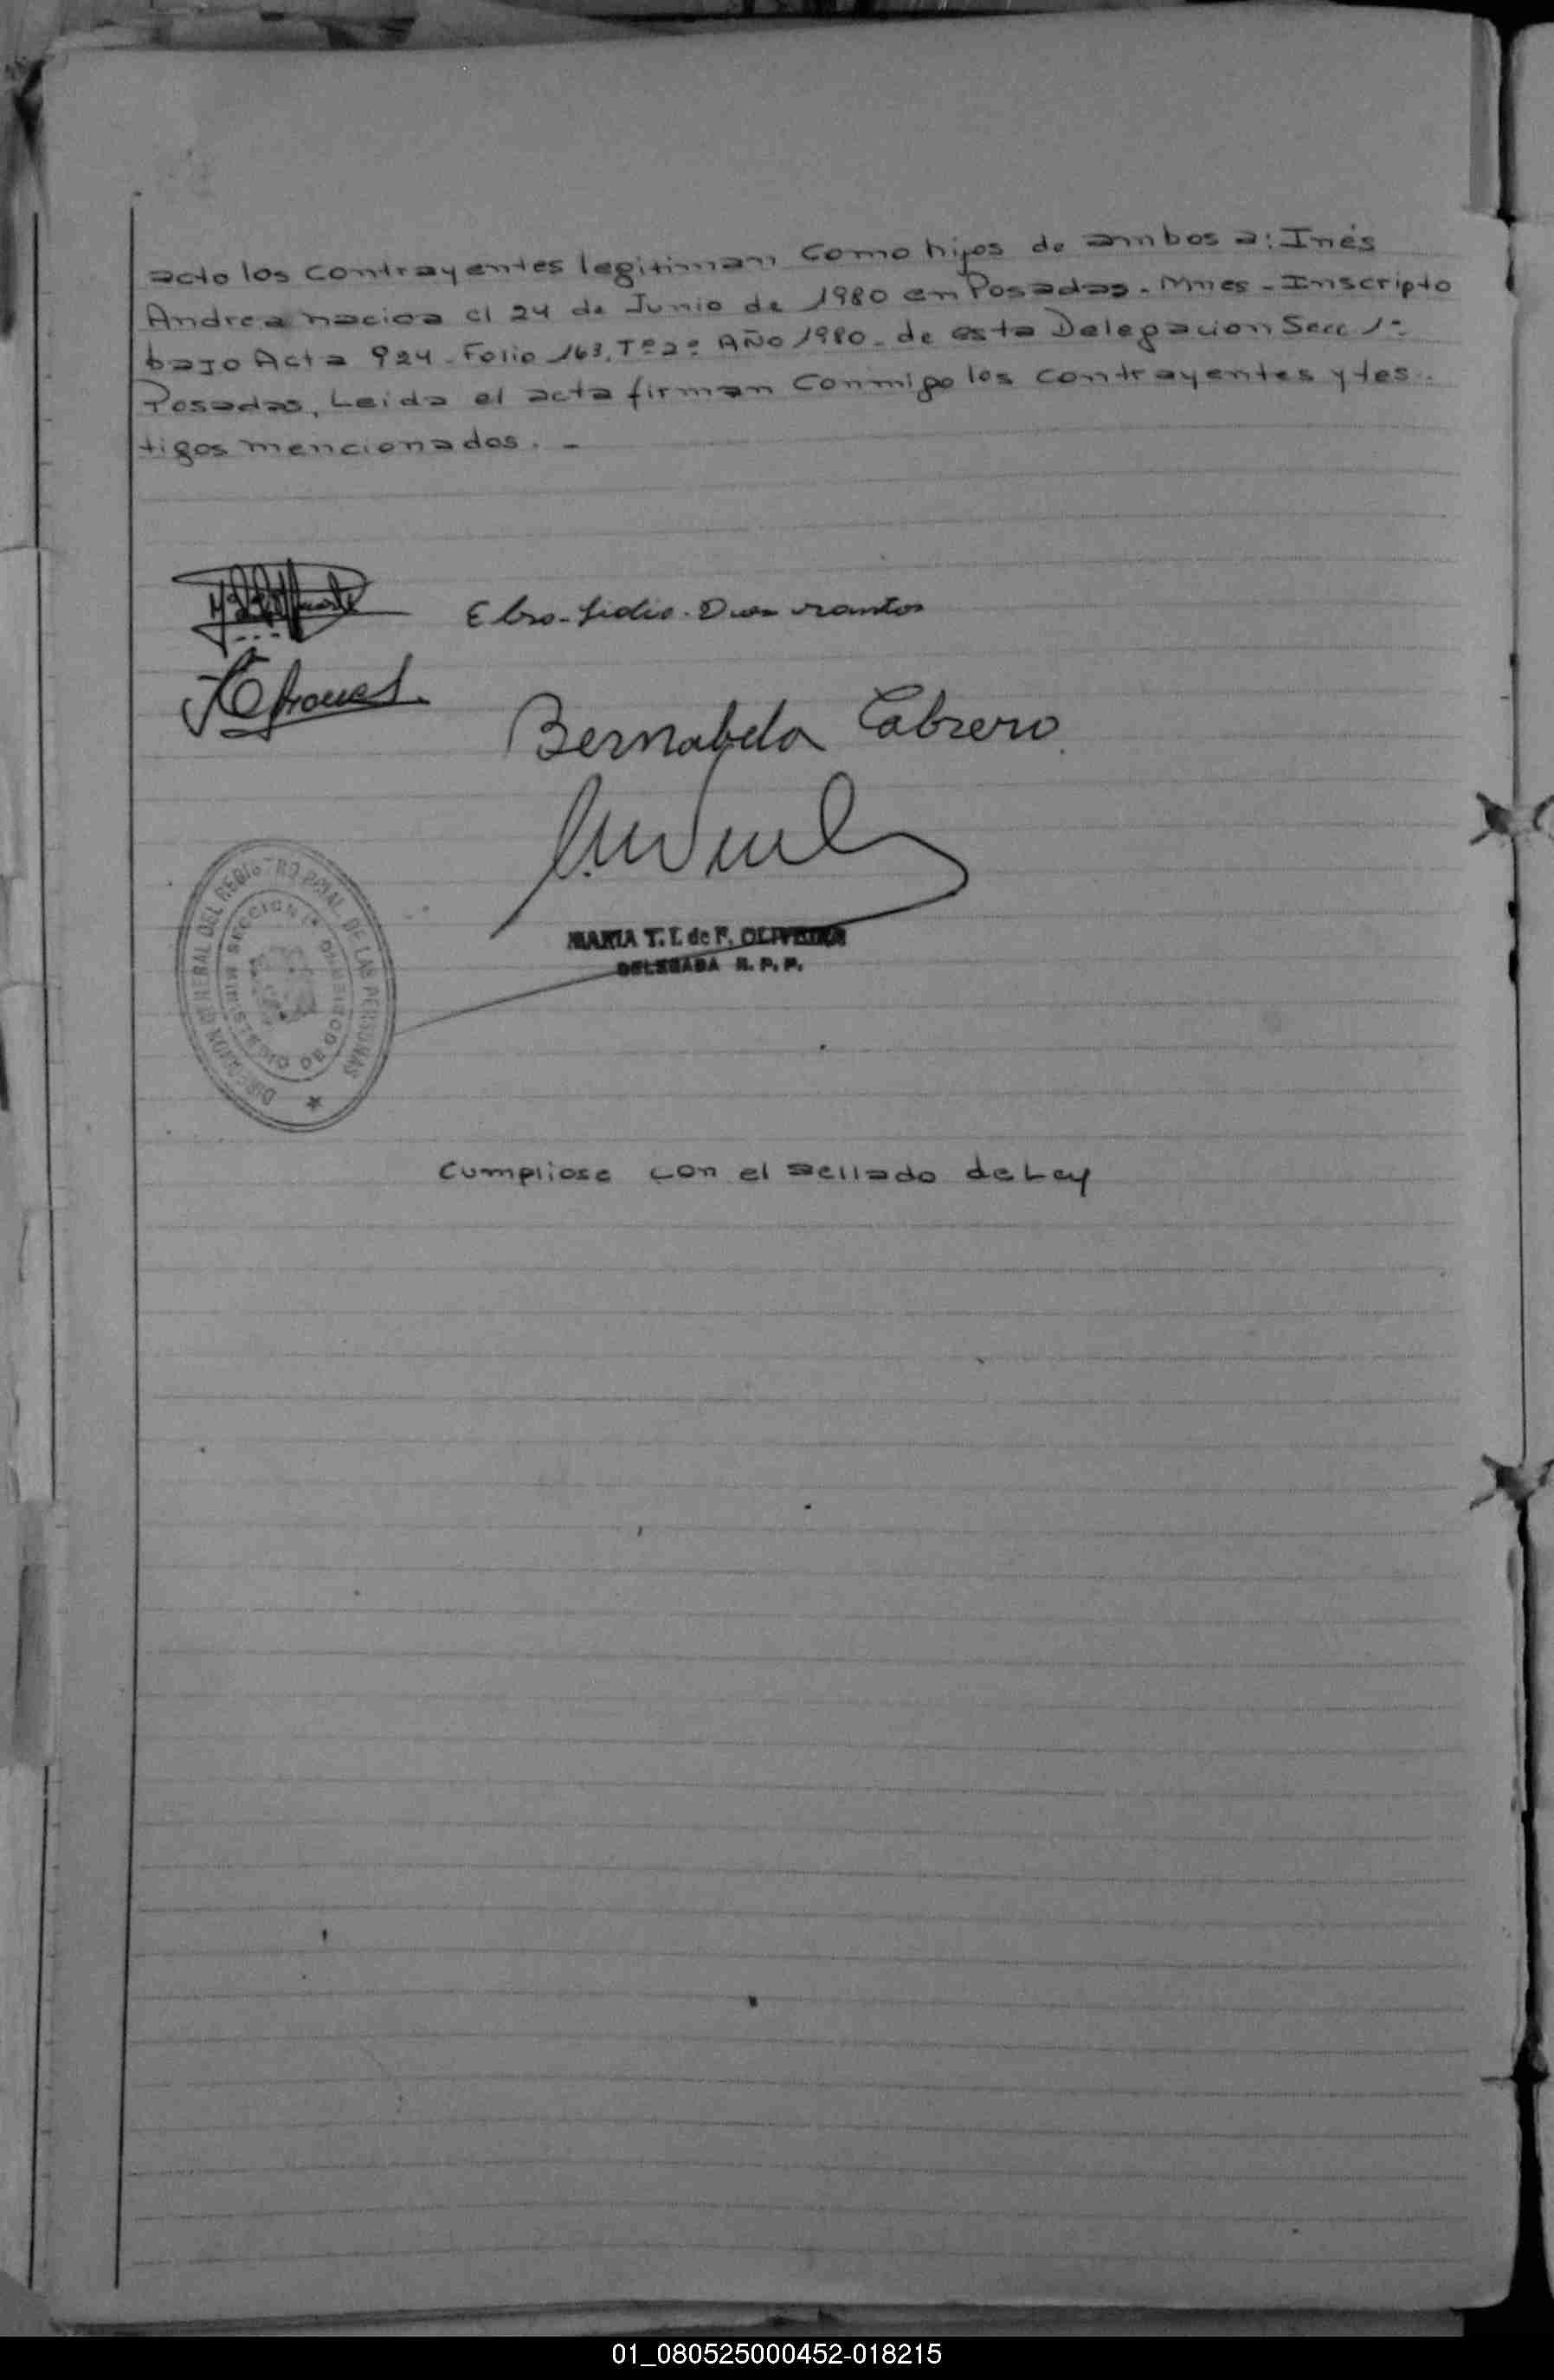 acto los contrayentes legitiman como hijos de ambos a: Inés
Andrea nacida el 24 de Junio de 1980 en Posadas. Mnes - Inscripto
bajo Acta 924 - Folio 163, Tº 2º Año 1980 - de esta Delegacion Secc 1ª
Posadas, Leida el acta firman conmigo los contrayentes y tes-
tigos mencionados. -
Bernabela Cabrero
MARIA T. I. de F. OLIVEIRA
DELEGADA R. P. P.
DIRECCION GENERAL DEL REGISTRO PCIAL. DE LAS PERSONAS
SECCION 1ª
Cumpliose con el sellado de Ley
01_080525000452-018215